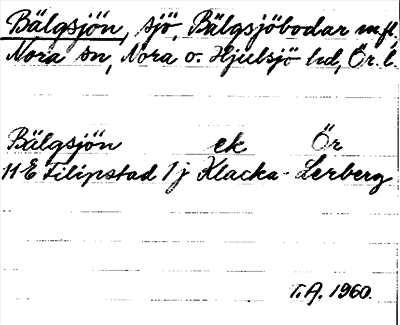 Bälgsjön, sjö, Bälgsjöbodar m fl.
Nora sn, Nora o. Hjulsjö hd, Ör. l.
Bälgsjön ek Ör
11 E Filipstad 1 j Klacka-Lerberg
T.A. 1960.